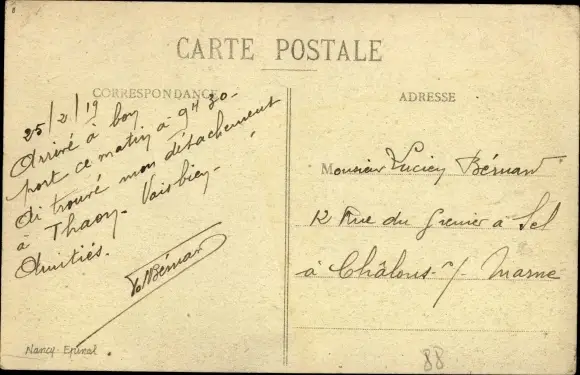 CARTE POSTALE
CORRESPONDANCE
25/2/19
Arrivé à bon
port ce matin à 9H30-
Ai trouvé mon détachement
à Thaon. Vais bien-
Amitiés.
Bérnard
Nancy-Epinal
ADRESSE
Monsieur Lucien Bérnard
12 Rue du Grenier à Sel
à Châlons s/ Marne
88